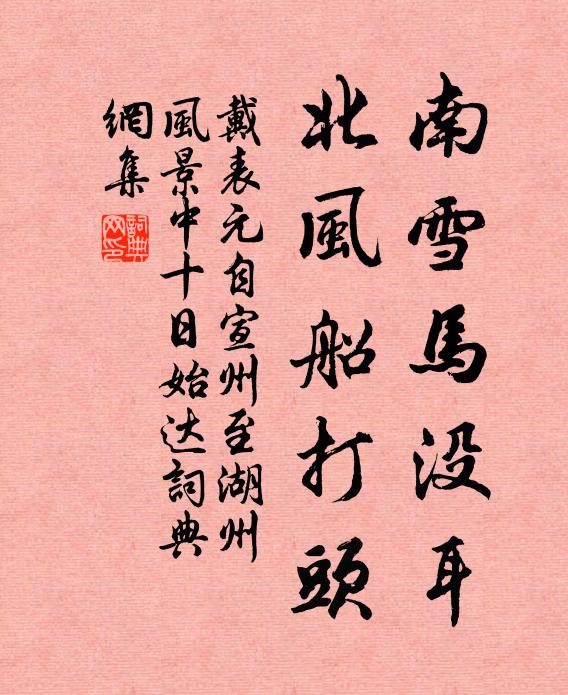 南雪馬没耳
北風船打頭
戴表元自宣州至湖州
風景中十日始达詞典
網集
詞典
网印